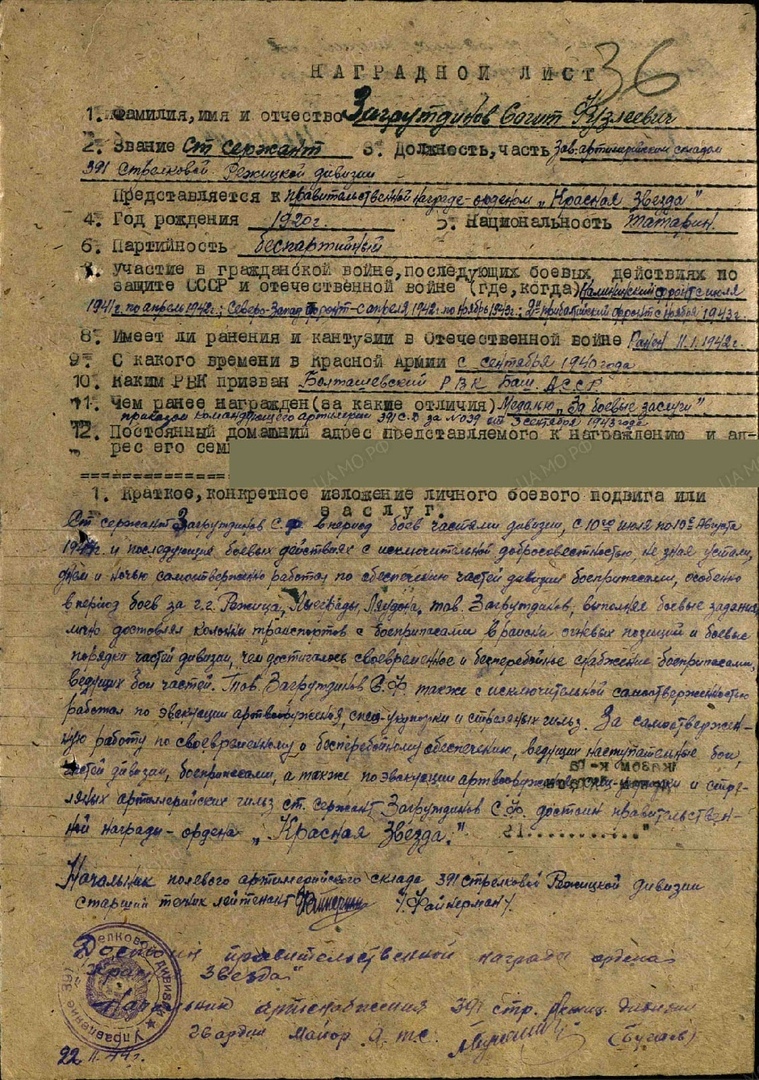 36
НАГРАДНОЙ ЛИСТ
1. Фамилия, имя и отчество Загрутдинов Согит
2. Звание Ст сержант 3. Должность, часть Зав. артиллерийским складом
391 Стрелковой Режицкой дивизии
Представляется к правительственной награде-орденом „Красная Звезда"
4. Год рождения 1920г. 5. Национальность татарин.
6. Партийность беспартийный
участие в гражданской войне, последующих боевых действиях по
защите СССР и отечественной войне (где, когда) Калининский фронт с июля
1941г. по апрель 1942г.; Северо-Запад фронт-с апреля 1942г. по ноябрь 1943г.; 2й прибалтийский фронт с ноября 1943г.
8. Имеет ли ранения и кантузии в Отечественной войне Ранен 11.1.1942г.
9. С какого времени в Красной Армии с сентября 1940 года
10. Каким РВК призван Болташевский РВК Баш. АССР
11. Чем ранее награжден (за какие отличия) Медалью „За боевые заслуги"
приказом командующего артиллерии 391 с.д. за №039 от 3 сентября 1943 года
12. Постоянный домашний адрес представляемого к награждению и ад-
рес его сем
1. Краткое, конкретное изложение личного боевого подвига или
заслуг.
Ст сержант Загрутдинов С.Ф в период боев частями дивизии, с 10го июля по 19е Августа
1944г. и последующих боевых действиях с исключительной добросовестностью, не зная устали,
днем и ночью самоотверженно работал по обеспечению частей дивизии боеприпасами, особенно
в период боев за г.г. Режица, Лаудона, тов. Загрутдинов, выполняя боевые задания
лично доставлял колонки транспортов с боеприпасами в районы огневых позиций и боевые
порядки частей дивизии, чем достигалось своевременное и бесперебойные снабжение боеприпасами,
ведущих бои частей. Тов. Загрутдинов С.Ф также с исключительной самоотверженностью
работал по эвакуации артвооружения, спец-укупорки и стреляных гильз. За самоотвержен-
ную работу по своевременному и бесперебойному обеспечению, ведущих наступательные бои,
частей дивизии, боеприпасами, а также по эвакуации артвооружения и стре-
ляных артиллерийских гильз ст. сержант Загрутдинов С.Ф. достоин правительствен-
ной награды-ордена „Красная Звезда."
21
Начальник полевого артиллерийского склада 391 стрелковой Режицкой дивизии
старший техник лейтенант /Файнерман/.
Достоин правительственной награда ордена
Звезда"
Начальник артснабжения 391 стр. Режиц. дивизии
Гвардии майор а.т.с.
Управление 391
стрелковой дивизии
22.11.44г.